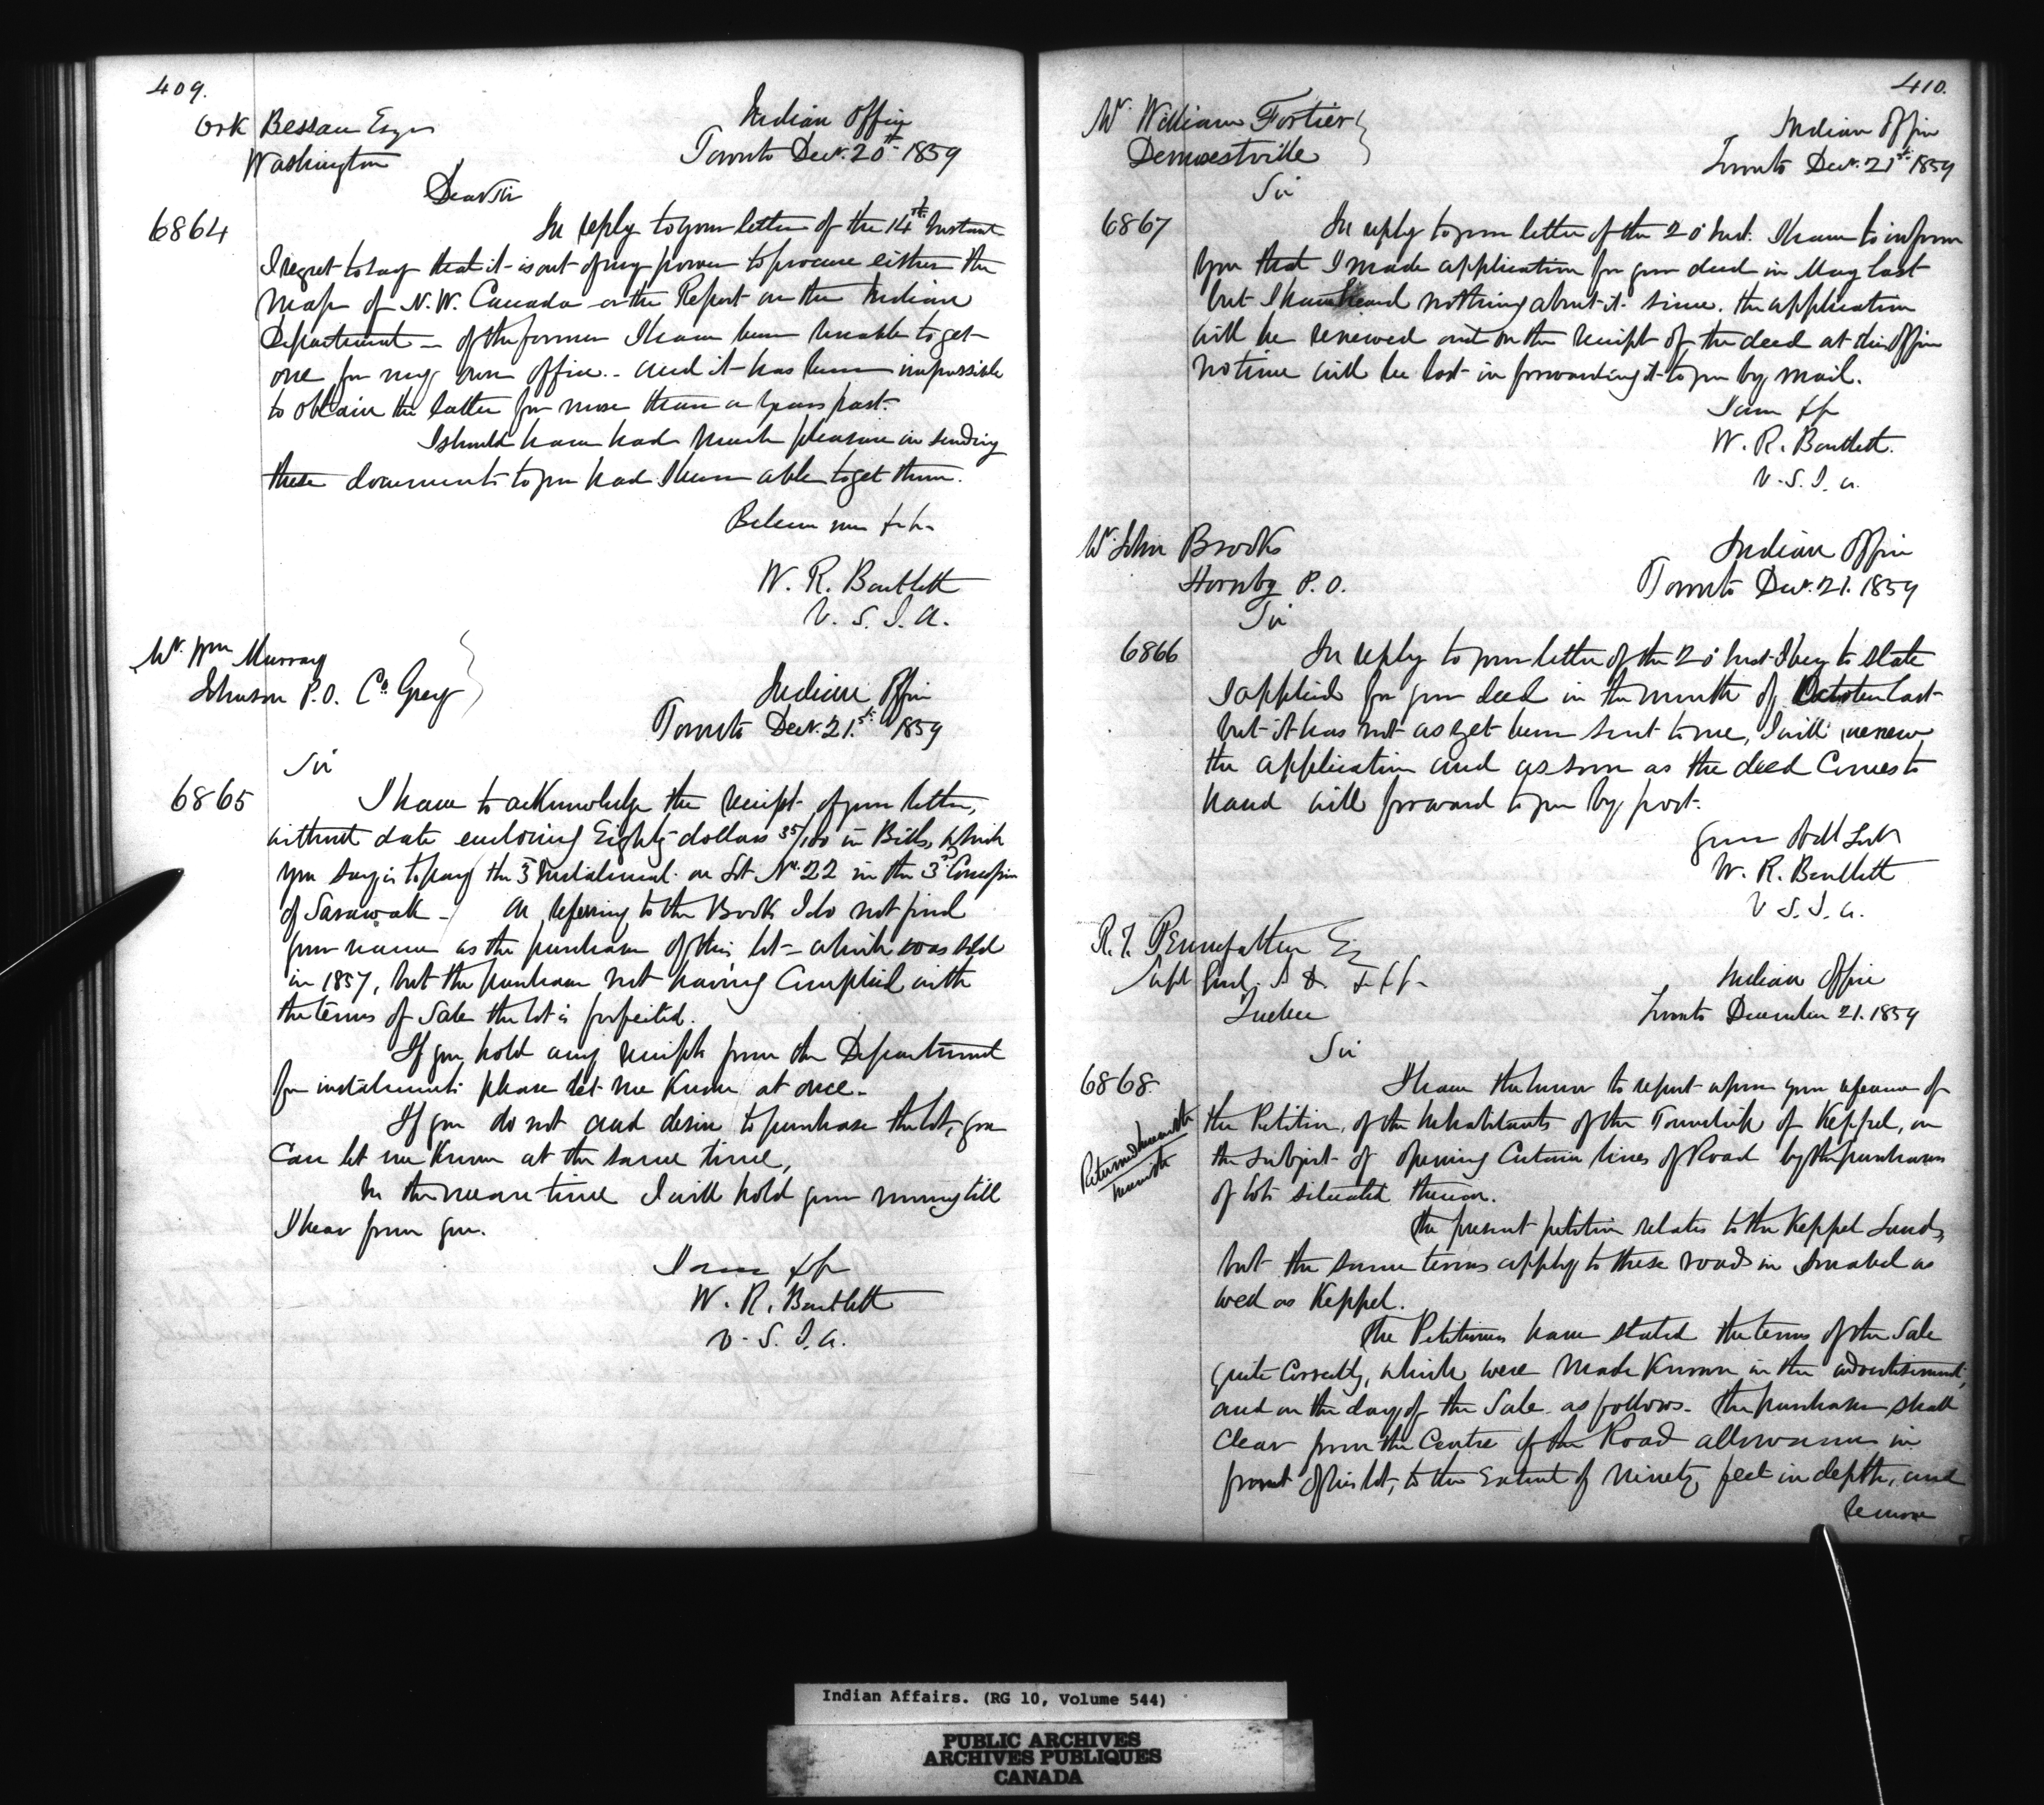 409.
Ork Bessau Esqr
Washington
Indian Office
Toronto Decr. 20th 1859
Dear Sir
6864
In reply to your letter of the 14th Instant
I regret to say that it is out of my power to procure either the
Map of N.W. Canada or the Report on the Indian
Department — of the former I have been unable to get
one for my own office — and it has been impossible
to obtain the latter for more than a years past.
I should have had much pleasure in sending
these documents to you had I been able to get them.
Believe me &c &c
W. R. Bartlett
V. S. I. A.
Mr. Wm Murray
Johnson P.O. Co. Grey
Indian Office
Toronto Decr. 21st 1859
Sir
6865
I have to acknowledge the receipt of your letter,
without date enclosing Eighty dollars 35/100 in Bills, which
you say is to pay the 3d Instalment on Lot No. 22 in the 3d Concession
of Sarawak — On referring to the Books I do not find
your name as the purchaser of this lot — which was sold
in 1857, but the purchaser not having Complied with
the terms of Sale the lot is forfeited.
If you hold any receipts from the Department
for instalments please let me Know at once.
If you do not and desire to purchase the lot, you
Can let me Know at the same time,
In the mean time I will hold your money till
I hear from you.
I am &c
W. R. Bartlett
V. S. I. A.
410.
Mr. William Fortier
Demorestville
Indian Office
Toronto Decr. 21st 1859
Sir
6867
In reply to your letter of the 20 Inst. I have to inform
you that I made application for your deed in May last
but I have heard nothing about it since. the application
will be renewed and on the receipt of the deed at this Office
no time will be lost in forwarding it to you by mail.
I am &c
W. R. Bartlett.
V. S. I. A.
Mr. John Brooks
Hornby P.O.
Indian Office
Toronto Decr. 21. 1859
Sir
6866
In reply to your letter of the 20 Inst I beg to state
I applied for your deed in the month of October last
but it has not as yet been sent to me, I will renew
the application and as soon as the deed Comes to
hand will forward to you by post.
Your Obdt Servt
W. R. Bartlett
V. S. I. A.
R. T. Pennefather Esq
Supt Genl. I. A. &c &c
Quebec
Indian Office
Toronto December 21. 1859
Sir
6868.
Returned herewith
I have the honor to report upon your reference of
the Petition, of the Inhabitants of the Township of Keppel, on
the subject of opening Certain lines of Road by the purchasers
of lots situated thereon.
The present petition relates to the Keppel Lands,
but the same terms apply to these roads in Amabel as
well as Keppel.
The Petitioners have stated the terms of the Sale
quite Correctly, which were made Known in the advertisement,
and on the day of the Sale as follows. The purchaser shall
Clear from the Centre of the Road allowance in
front of his lot, to the Extent of ninety feet in depth, and
remove
Indian Affairs. (RG 10, Volume 544)
PUBLIC ARCHIVES
ARCHIVES PUBLIQUES
CANADA